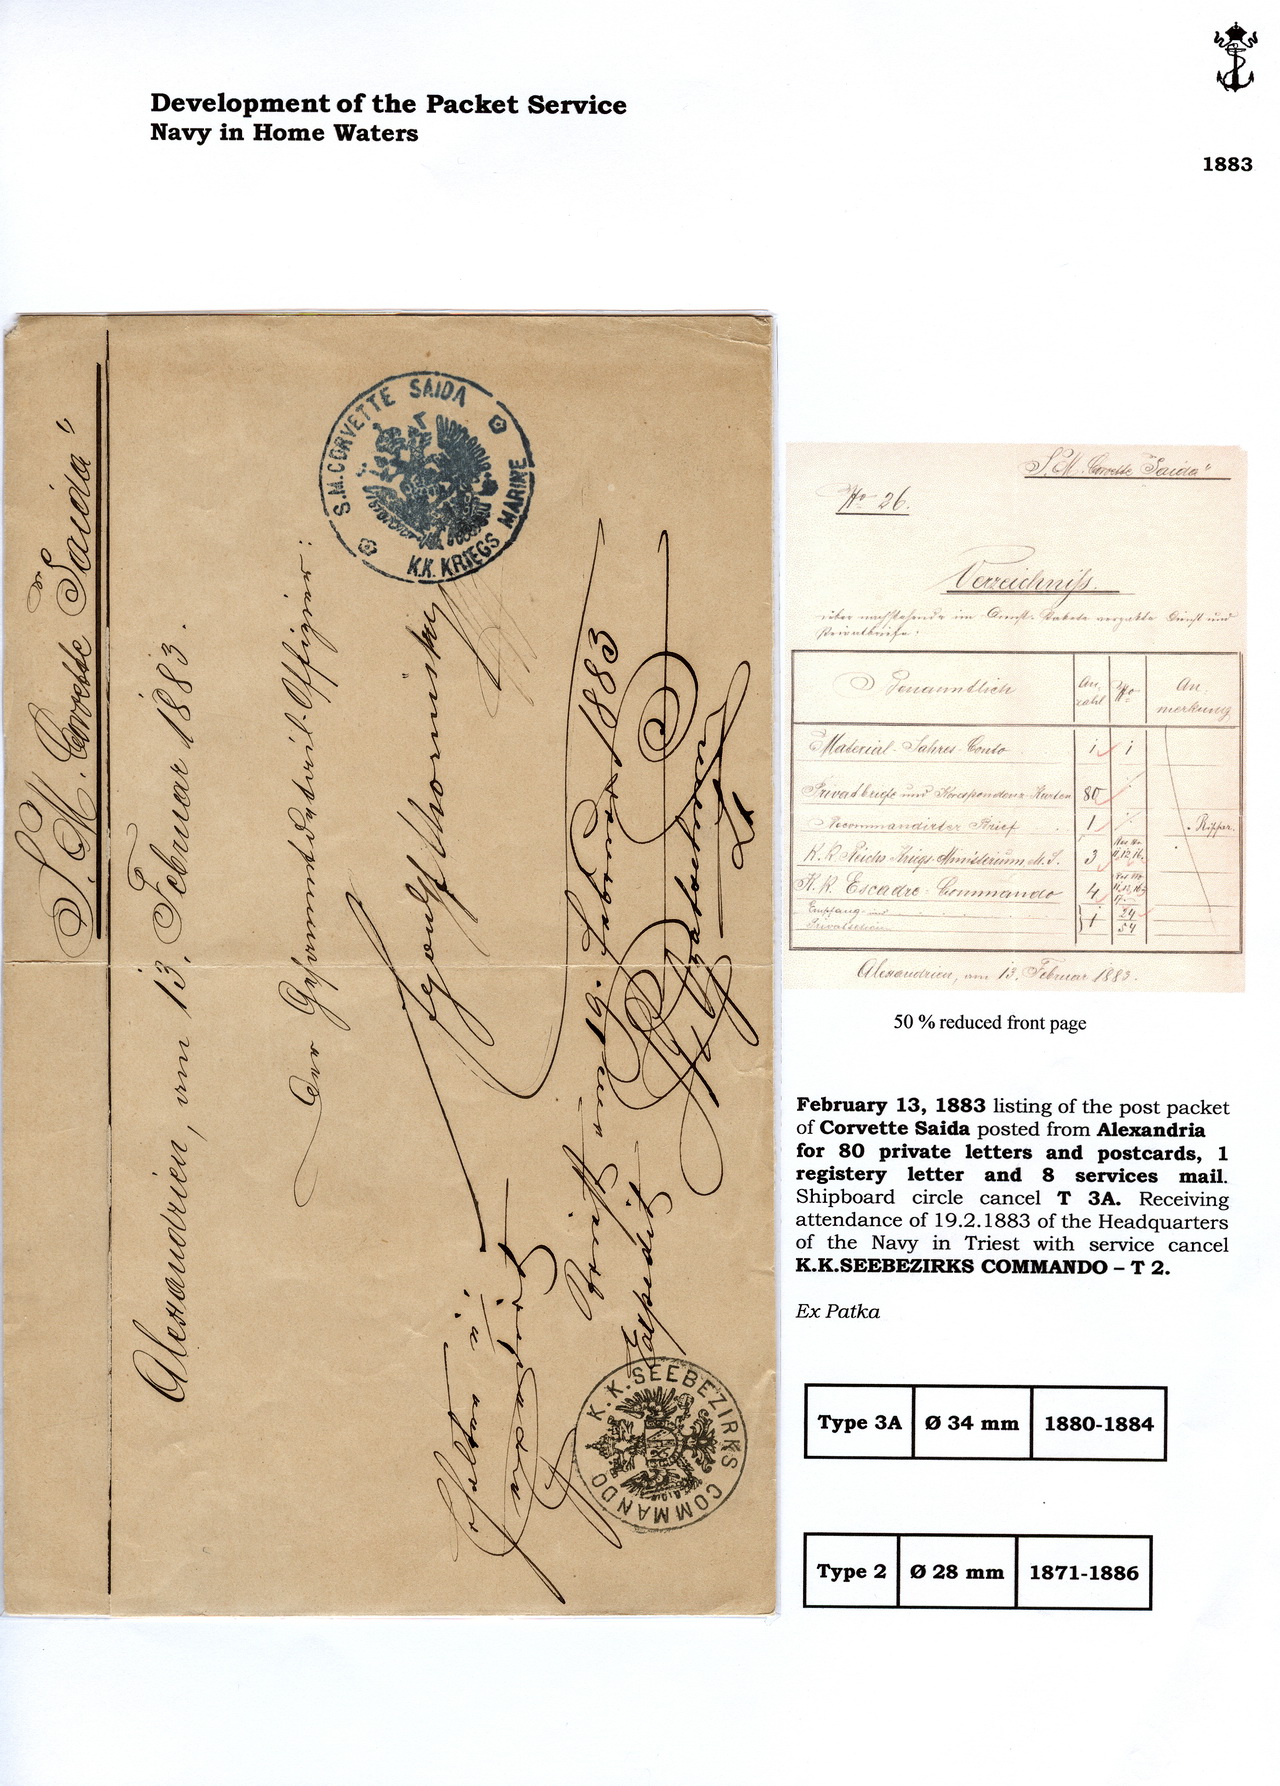 Development of the Packet Service
Navy in Home Waters
1883
S. M. Corvette "Saida"
Alexandrien, am 13. Februar 1883.
S.M. CORVETTE SAIDA
K.K. KRIEGS MARINE
Der Gesammtdetail-Offizier:
Erhalten
19. Februar 1883
Expedit
K. K. SEEBEZIRKS COMMANDO
S. M. Corvette "Saida"
No 26.
Verzeichniss.
über nachstehende im Dienst-Pakete verpakte Dienst und
Privatbriefe:
Benanntlich
An-
zahl
No
An-
merkung
Material-Jahres-Conto 1 1
Privatbriefe und Korrespondenz-Karten 80
Recommandirter Brief 1
K. K. Reichs Kriegs-Ministerium M. S. 3
K. K. Escadre-Commando 4
Alexandrien, am 13. Februar 1883.
50 % reduced front page
February 13, 1883 listing of the post packet
of Corvette Saida posted from Alexandria
for 80 private letters and postcards, 1
registery letter and 8 services mail.
Shipboard circle cancel T 3A. Receiving
attendance of 19.2.1883 of the Headquarters
of the Navy in Triest with service cancel
K.K.SEEBEZIRKS COMMANDO – T 2.
Ex Patka
Type 3A Ø 34 mm 1880-1884
Type 2 Ø 28 mm 1871-1886